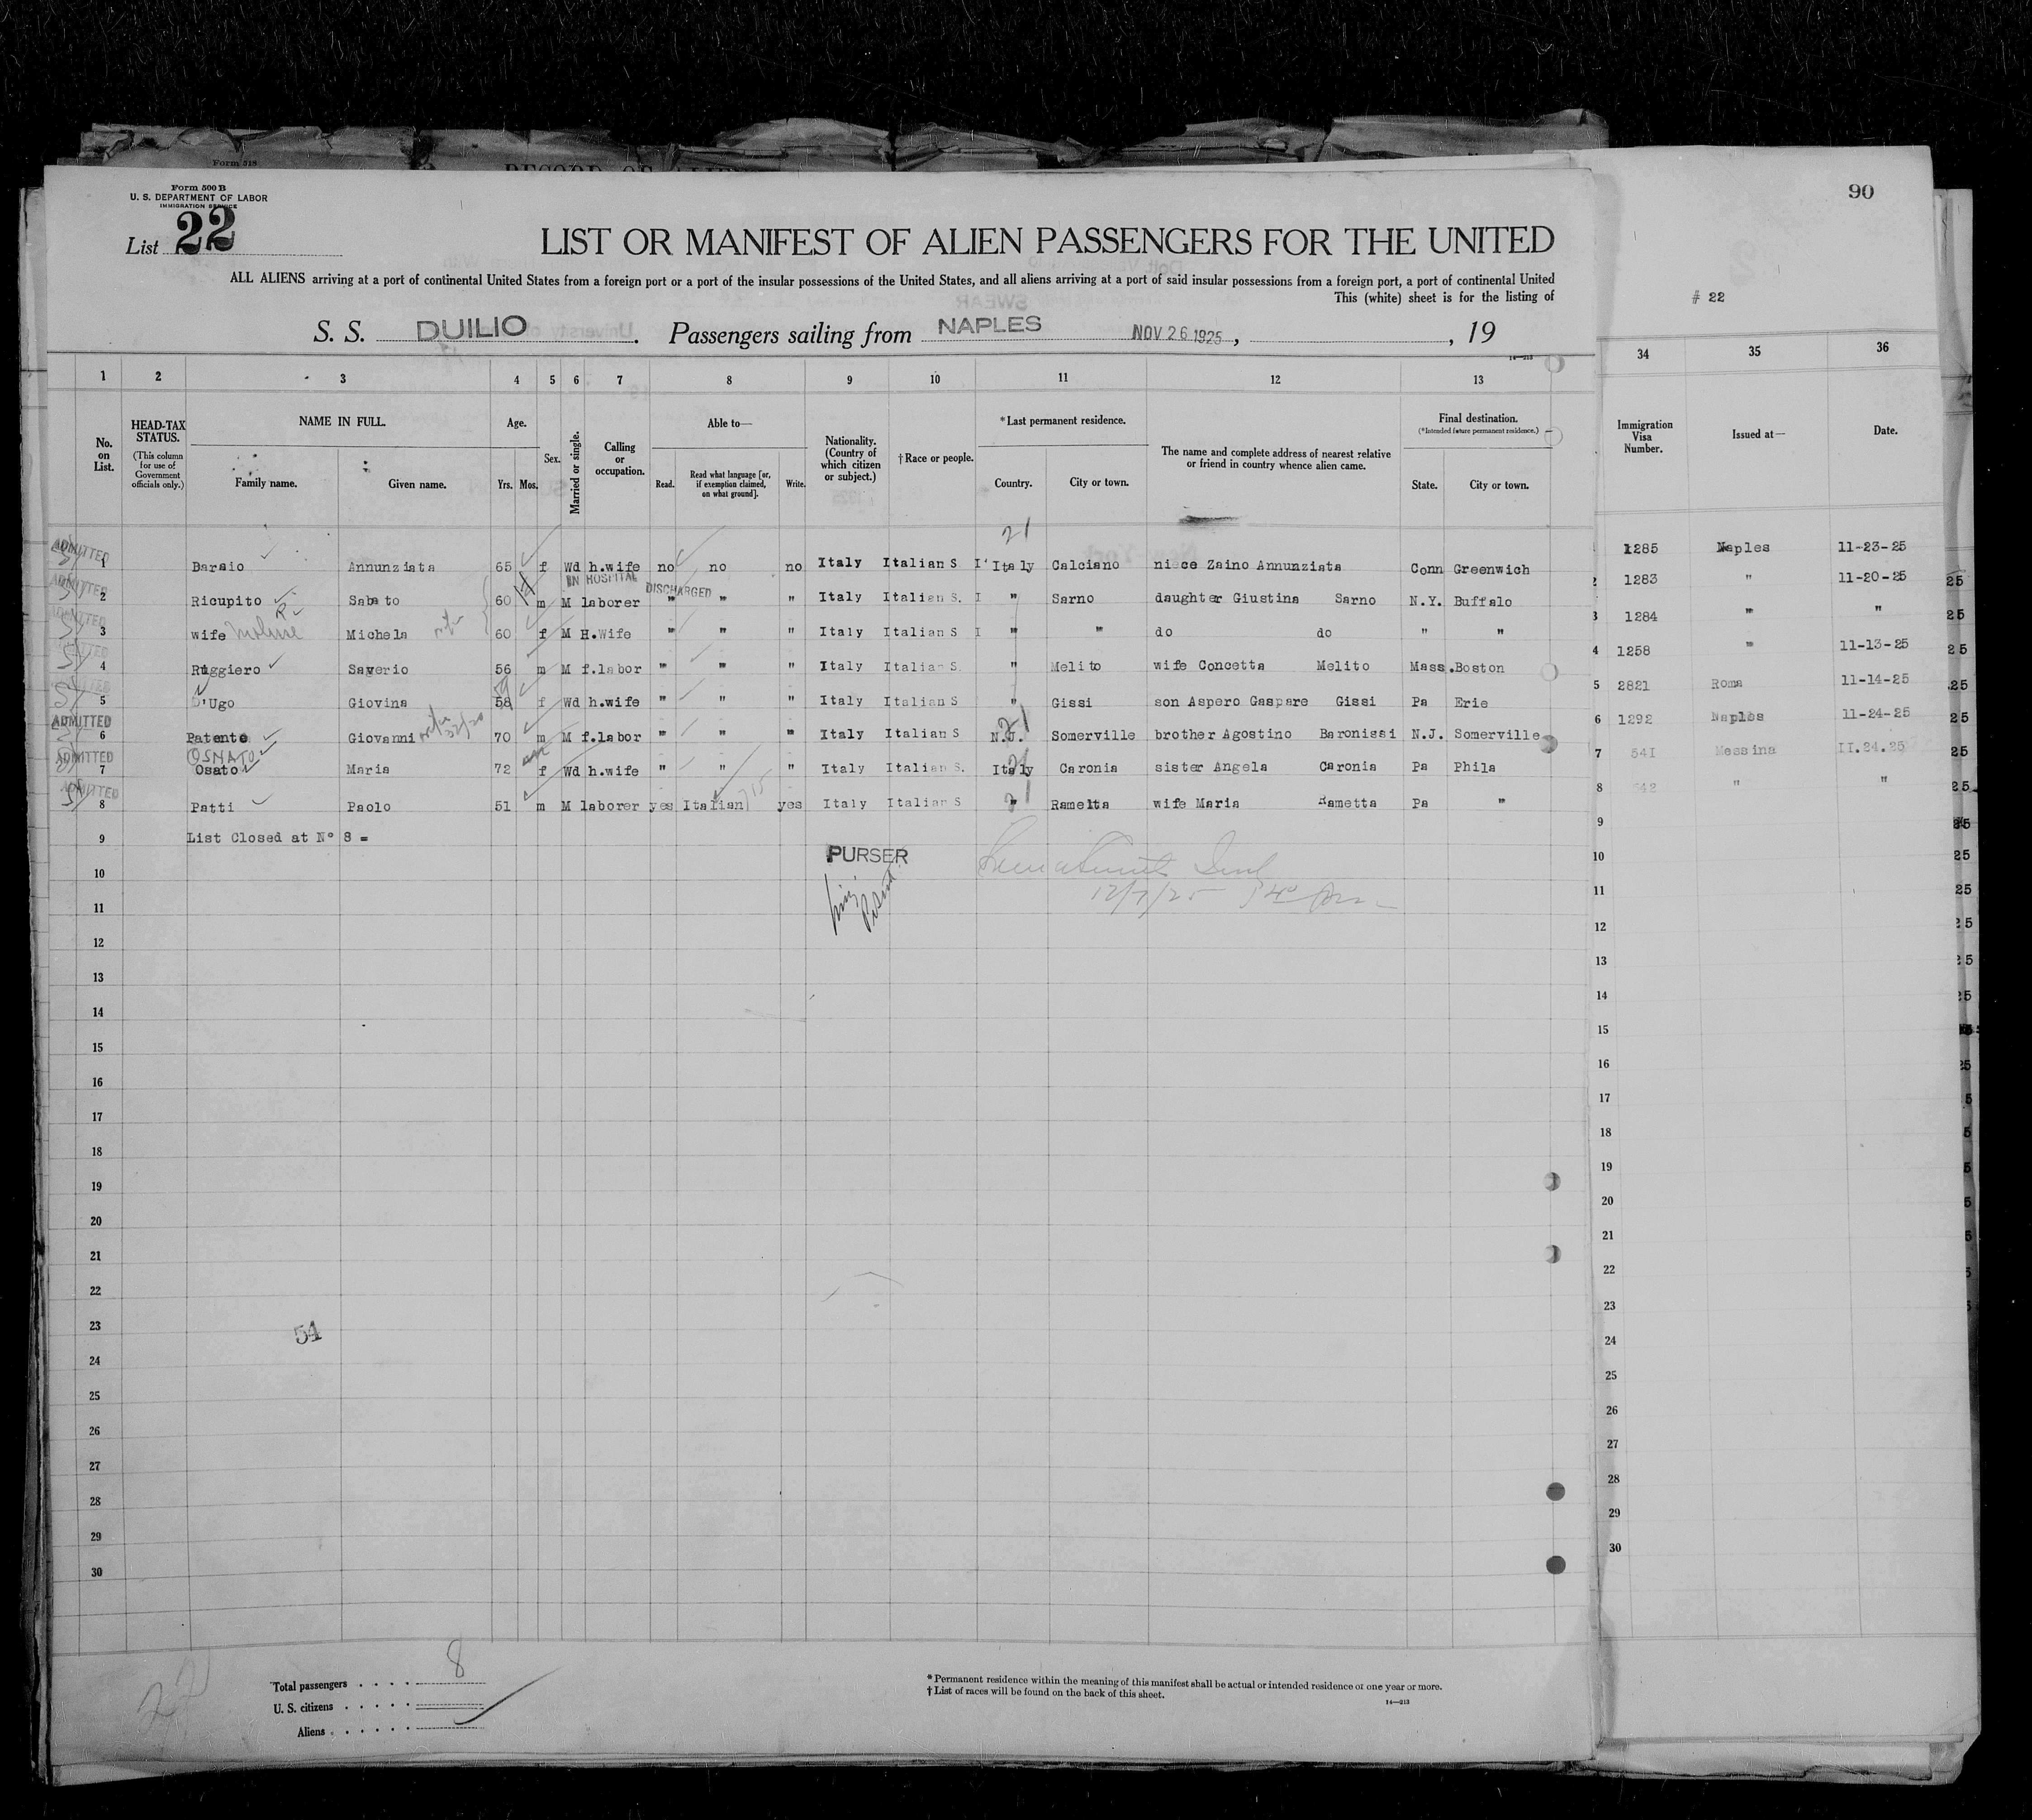 Form 518
Form 500 B
U. S. DEPARTMENT OF LABOR
IMMIGRATION SERVICE
List 22
90
LIST OR MANIFEST OF ALIEN PASSENGERS FOR THE UNITED
ALL ALIENS arriving at a port of continental United States from a foreign port or a port of the insular possessions of the United States, and all aliens arriving at a port of said insular possessions from a foreign port, a port of continental United
This (white) sheet is for the listing of
# 22
S. S. DUILIO. Passengers sailing from NAPLES NOV 26 1925, , 19
14—213
1 2 3 4 5 6 7 8 9 10 11 12 13 34 35 36
No. on List.
HEAD-TAX STATUS.
(This column for use of Government officials only.)
NAME IN FULL.
Family name. Given name.
Age.
Yrs. Mos.
Sex.
Married or single.
Calling or occupation.
Able to—
Read. Read what language [or, if exemption claimed, on what ground]. Write.
Nationality. (Country of which citizen or subject.)
†Race or people.
*Last permanent residence.
Country. City or town.
The name and complete address of nearest relative or friend in country whence alien came.
Final destination.
(*Intended future permanent residence.)
State. City or town.
Immigration Visa Number.
Issued at—
Date.
21
ADMITTED 1 Baraio Annunziata 65 f Wd h.wife no no no Italy Italian S I Italy Calciano niece Zaino Annunziata Conn Greenwich 1285 Naples 11-23-25
IN HOSPITAL DISCHARGED
ADMITTED 2 Ricupito Sabato 60 m M laborer " " " Italy Italian S. I " Sarno daughter Giustina Sarno N.Y. Buffalo 2 1283 " 11-20-25
ADMITTED 3 wife Michela 60 f M H.Wife " " " Italy Italian S I " " do do " " 3 1284 " "
4 Ruggiero Saverio 56 m M f.labor " " " Italy Italian S. " Melito wife Concetta Melito Mass. Boston 4 1258 " 11-13-25
59
5 D'Ugo Giovina 58 f Wd h.wife " " " Italy Italian S " Gissi son Aspero Gaspare Gissi Pa Erie 5 2821 Roma 11-14-25
21
ADMITTED 6 Patente Giovanni 70 m M f.labor " " " Italy Italian S N.J. Somerville brother Agostino Baronissi N.J. Somerville 6 1292 Naples 11-24-25
OSNATO
ADMITTED 7 Osato Maria 72 f Wd h.wife " " " Italy Italian S. Italy Caronia sister Angela Caronia Pa Phila 7 541 Messina 11.24.25
ADMITTED 8 Patti Paolo 51 m M laborer yes Italian yes Italy Italian S " Ramelta wife Maria Rametta Pa " 8 542 " "
9 List Closed at N° 8 = 9
PURSER
10 10
12/7/25
11 11
12 12
13 13
14 14
15 15
16 16
17 17
18 18
19 19
20 20
21 21
22 22
23 23
54
24 24
25 25
26 26
27 27
28 28
29 29
30 30
22
Total passengers . . . . 8
U. S. citizens . . . . .
Aliens . . . . . .
* Permanent residence within the meaning of this manifest shall be actual or intended residence of one year or more.
† List of races will be found on the back of this sheet.
14—213